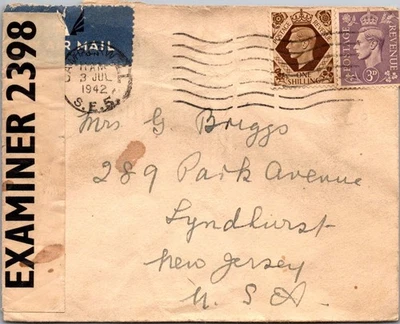 AIR MAIL
11 AM
3 JUL
1942
S.E.5.
ONE
SHILLING
POSTAGE
REVENUE
3D
EXAMINER 2398
Mrs G Briggs
289 Park Avenue
Lyndhurst
New Jersey
U.S.A.